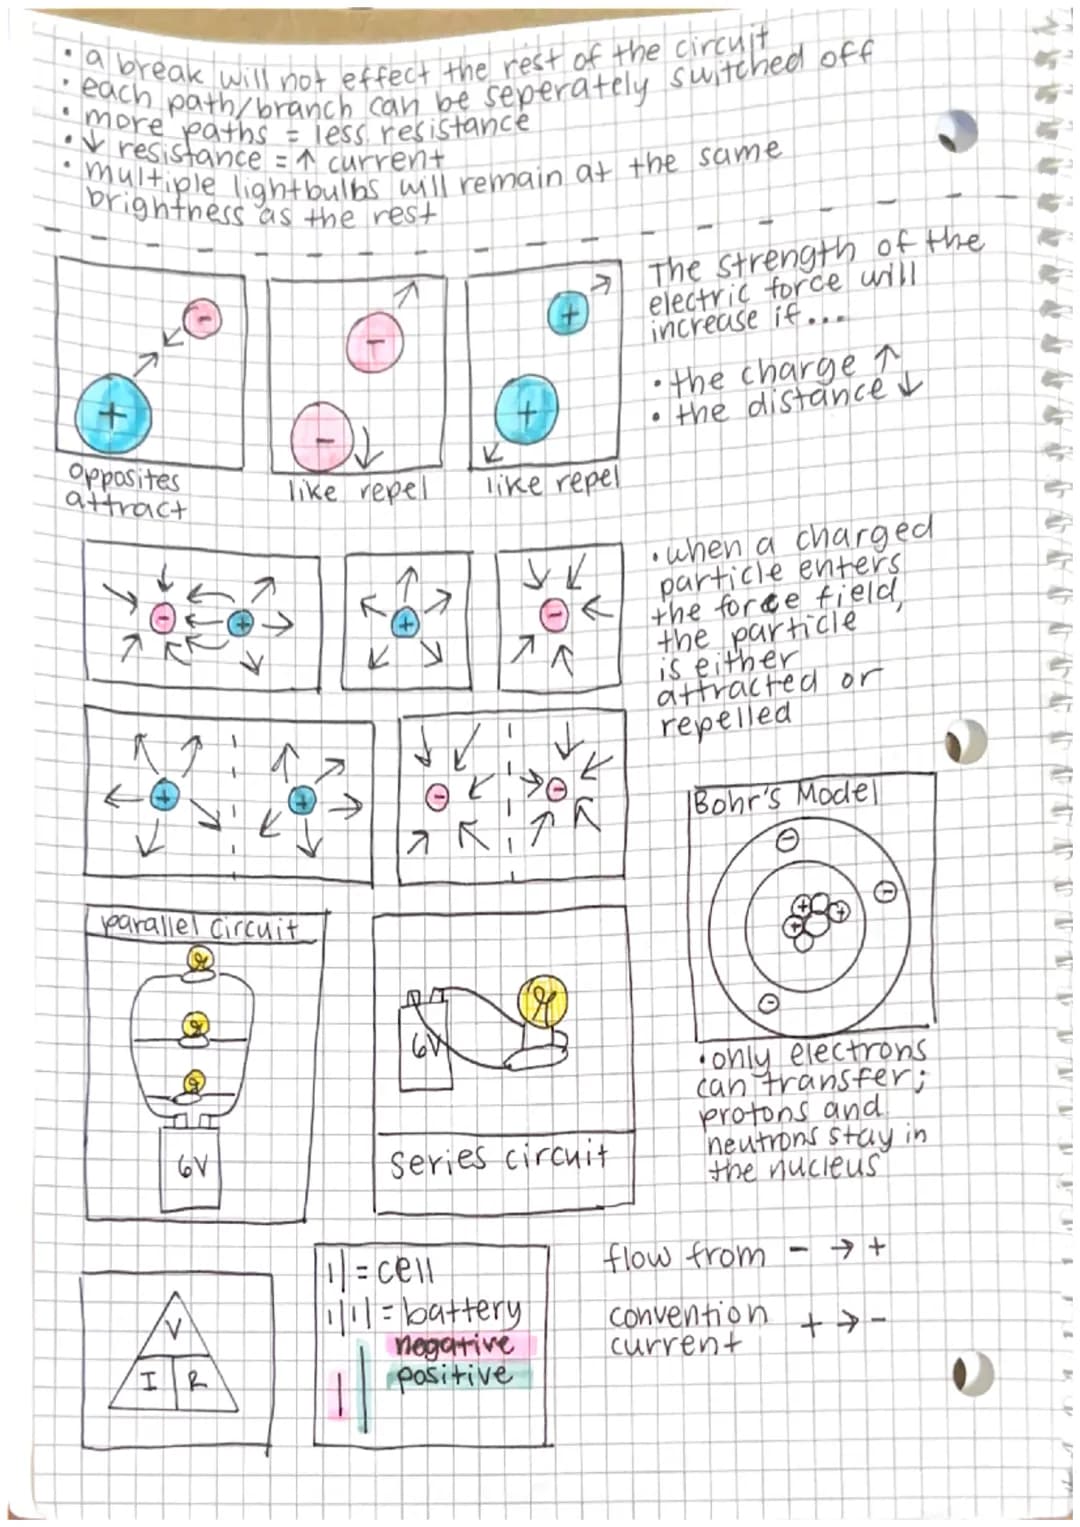 • a break will not effect the rest of the circuit
• each path/branch can be seperately switched off
• more paths = less resistance
• ↓ resistance = ↑ current
• multiple lightbulbs will remain at the same
brightness as the rest
The strength of the
electric force will
increase if...
• the charge ↑
• the distance ↓
-
+
opposites
attract
-
-
like repel
+
+
like repel
• when a charged
particle enters
the force field,
the particle
is either
attracted or
repelled
- +
+
-
+ +
- -
Bohr's Model
-
-
+ +
+
-
• only electrons
can transfer;
protons and
neutrons stay in
the nucleus
parallel circuit
6V
6V
series circuit
V
I R
ı| = cell
ı|ı| = battery
negative
positive
flow from - → +
convention + → -
current